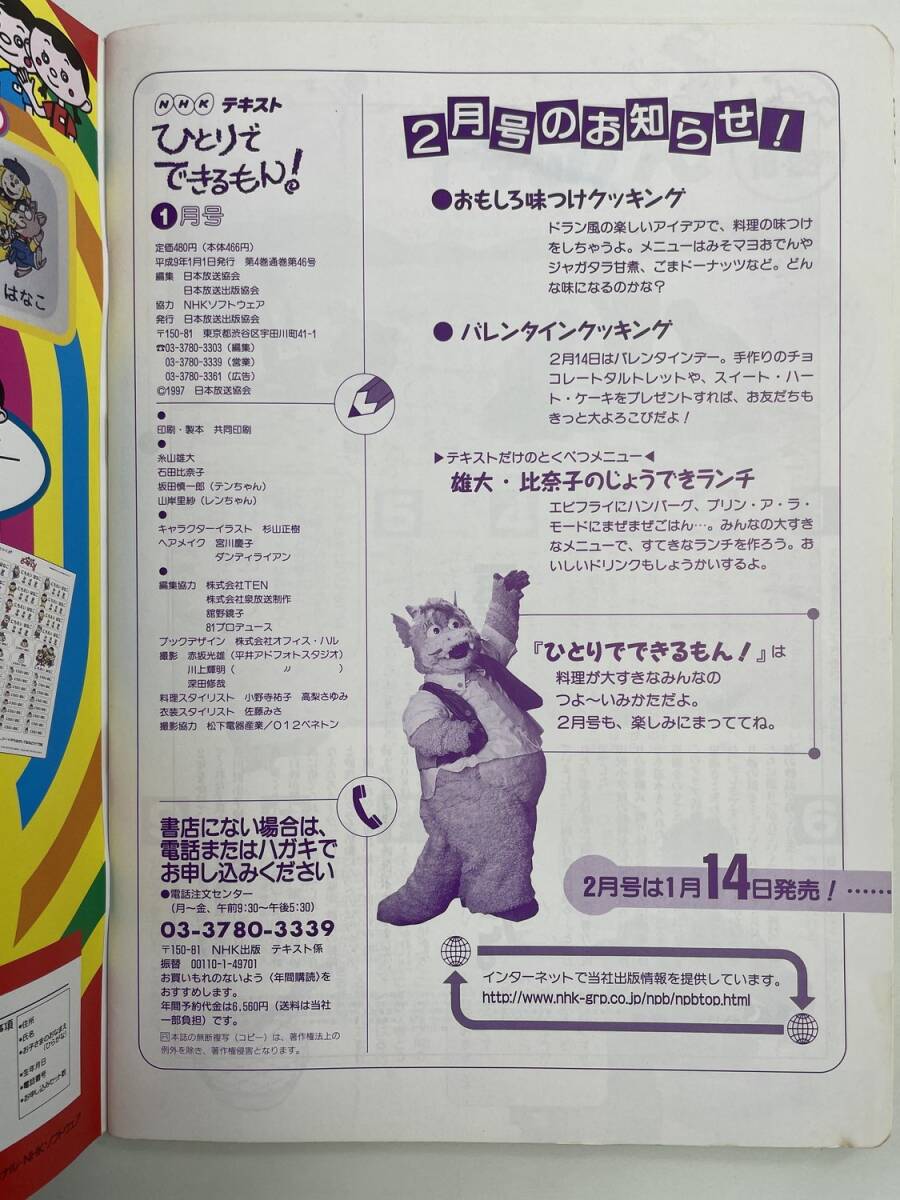 NHK テキスト
ひとりで
できるもん!
1月号
定価480円(本体466円)
平成9年1月1日発行 第4巻通巻第46号
編集 日本放送協会
日本放送出版協会
協力 NHKソフトウェア
発行 日本放送出版協会
〒150-81 東京都渋谷区宇田川町41-1
☎03-3780-3303(編集)
03-3780-3339(営業)
03-3780-3361(広告)
©1997 日本放送協会
●
印刷・製本 共同印刷
●
糸山雄大
石田比奈子
坂田慎一郎(テンちゃん)
山岸里紗(レンちゃん)
●
キャラクターイラスト 杉山正樹
ヘアメイク 宮川慶子
ダンディライアン
●
編集協力 株式会社TEN
株式会社泉放送制作
舘野鏡子
81プロデュース
ブックデザイン 株式会社オフィス・ハル
撮影 赤坂光雄(平井アドフォトスタジオ)
川上輝明( 〃 )
深田修哉
料理スタイリスト 小野寺祐子 高梨さゆみ
衣装スタイリスト 佐藤みさ
撮影協力 松下電器産業/012ベネトン
書店にない場合は、
電話またはハガキで
お申し込みください
●電話注文センター
(月〜金、午前9:30〜午後5:30)
03-3780-3339
〒150-81 NHK出版 テキスト係
振替 00110-1-49701
お買いもれのないよう〈年間購読〉を
おすすめします。
年間予約代金は6,560円(送料は当社
一部負担)です。
本誌の無断複写(コピー)は、著作権法上の
例外を除き、著作権侵害となります。
2月号のお知らせ!
●おもしろ味つけクッキング
ドラン風の楽しいアイデアで、料理の味つけ
をしちゃうよ。メニューはみそマヨおでんや
ジャガタラ甘煮、ごまドーナッツなど。どん
な味になるのかな?
● バレンタインクッキング
2月14日はバレンタインデー。手作りのチョ
コレートタルトレットや、スイート・ハー
ト・ケーキをプレゼントすれば、お友だちも
きっと大よろこびだよ!
▶テキストだけのとくべつメニュー◀
雄大・比奈子のじょうできランチ
エビフライにハンバーグ、プリン・ア・ラ・
モードにまぜまぜごはん…。みんなの大すき
なメニューで、すてきなランチを作ろう。お
いしいドリンクもしょうかいするよ。
『ひとりでできるもん!』は
料理が大すきなみんなの
つよ〜いみかただよ。
2月号も、楽しみにまっててね。
2月号は1月14日発売!……
インターネットで当社出版情報を提供しています。
http://www.nhk-grp.co.jp/npb/npbtop.html
はなこ
事項
●住所
●氏名
●お子さまのおなまえ
(ひらがな)
●生年月日
●電話番号
●お申し込みセット数
ナル・NHKソフトウェア